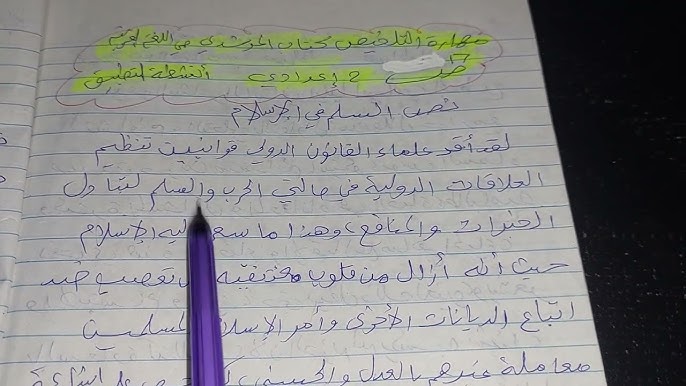 مهارة التلخيص كتاب المرشدي في اللغة العربية
ص 17 2 إعدادي أنشطة التطبيق
نص السلم في الإسلام
لقد أقر علماء القانون الدولي قوانين تنظيم
العلاقات الدولية في حالتي الحرب والسلم لتبادل
الخبرات والمنافع، وهذا ما سعى إليه الإسلام
حيث أنه أزال من قلوب معتنقيه كل تعصب ضد
اتباع الديانات الأخرى وأمر الإسلام المسلمين
معاملة غيرهم بالعدل والحسنى